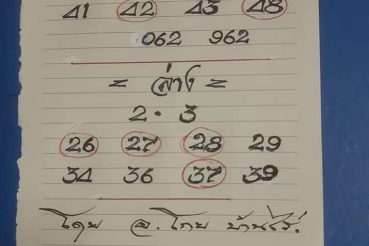 41 42 43 48
062 962
= ล่าง =
2 · 3
26 27 28 29
34 36 37 39
โดย อ. โทย บ้านไร่.